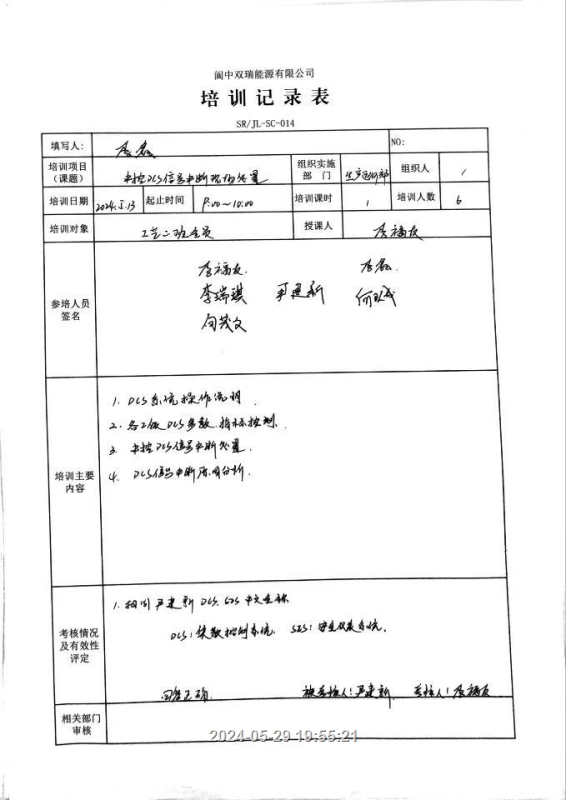 阆中双瑞能源有限公司
培训记录表
SR/JL-SC-014
填写人： 李磊 NO:
培训项目（课题） 中控DCS信号中断现场处置 组织实施部门 生产运行部 组织人 /
培训日期 2024.5.13 起止时间 9:00~10:00 培训课时 1 培训人数 6
培训对象 工艺二班全员 授课人 李福友
参培人员签名
李福友 李磊
李瑞骐 严建新
向茂文
培训主要内容
1. DCS系统操作说明.
2. 各工段DCS参数.指标控制.
3. 中控DCS信号中断处置.
4. DCS信号中断原因分析.
考核情况及有效性评定
1. 抽问严建新 DCS. SIS 中文全称
DCS: 集散控制系统. SIS: 安全仪表系统.
回答正确 被考核人: 严建新 考核人: 李福友
相关部门审核
2024-05-29 19:55:21